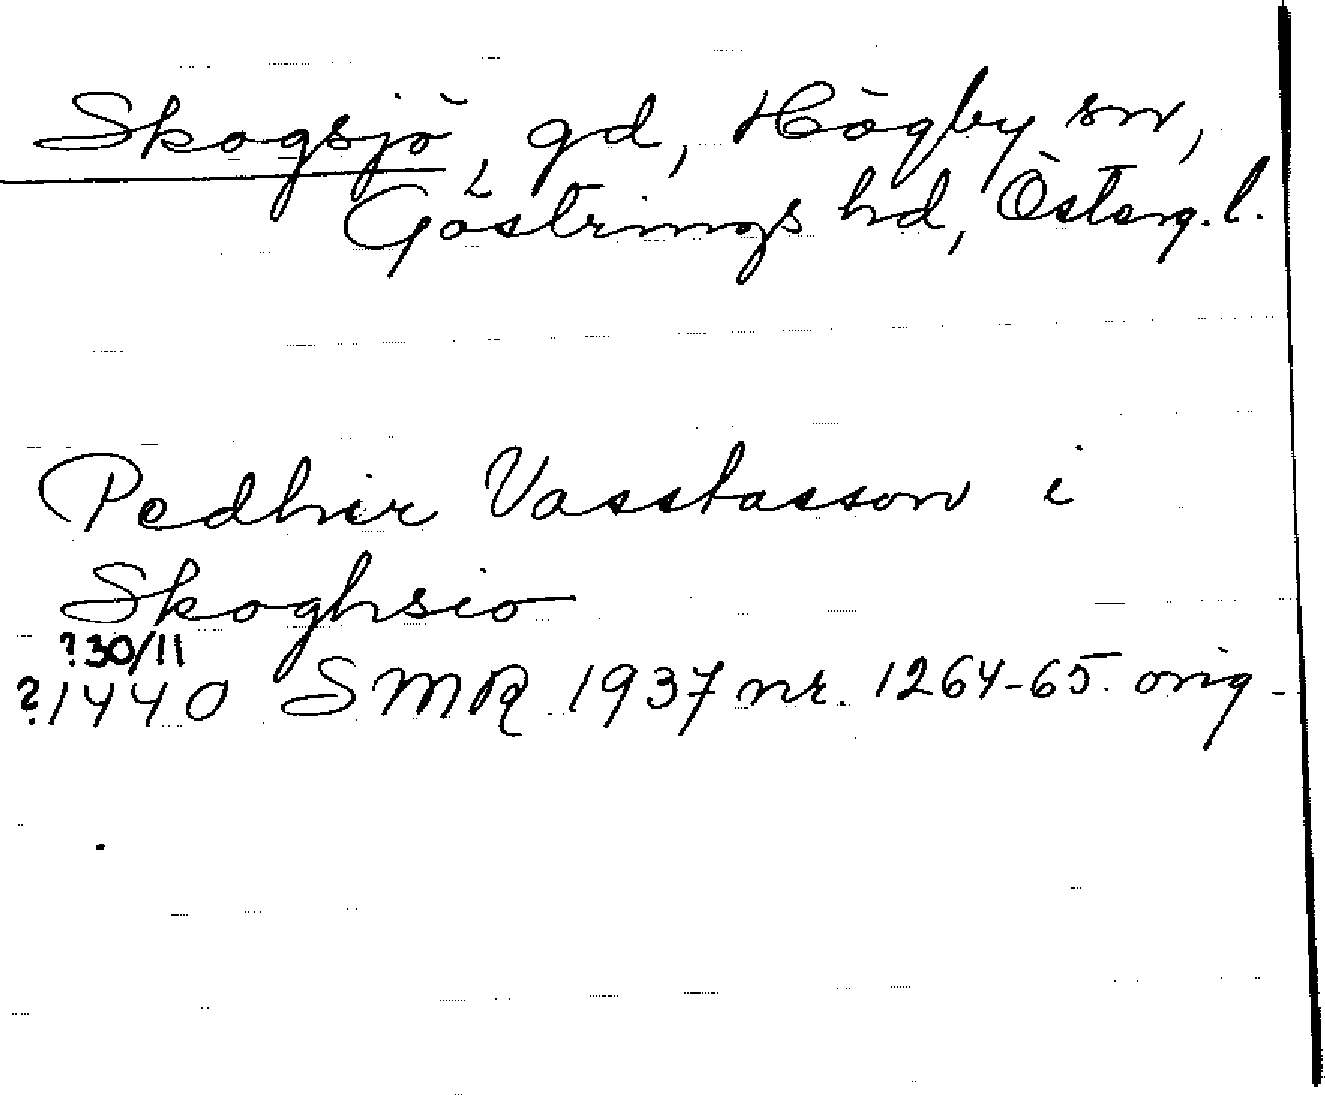 Skogsjö, gd, Högby sn,
Göstrings hd, Österg. l.
Pedhir Vasstasson i
Skoghsio
?30/11
?1440 SMR 1937 nr. 1264-65. orig